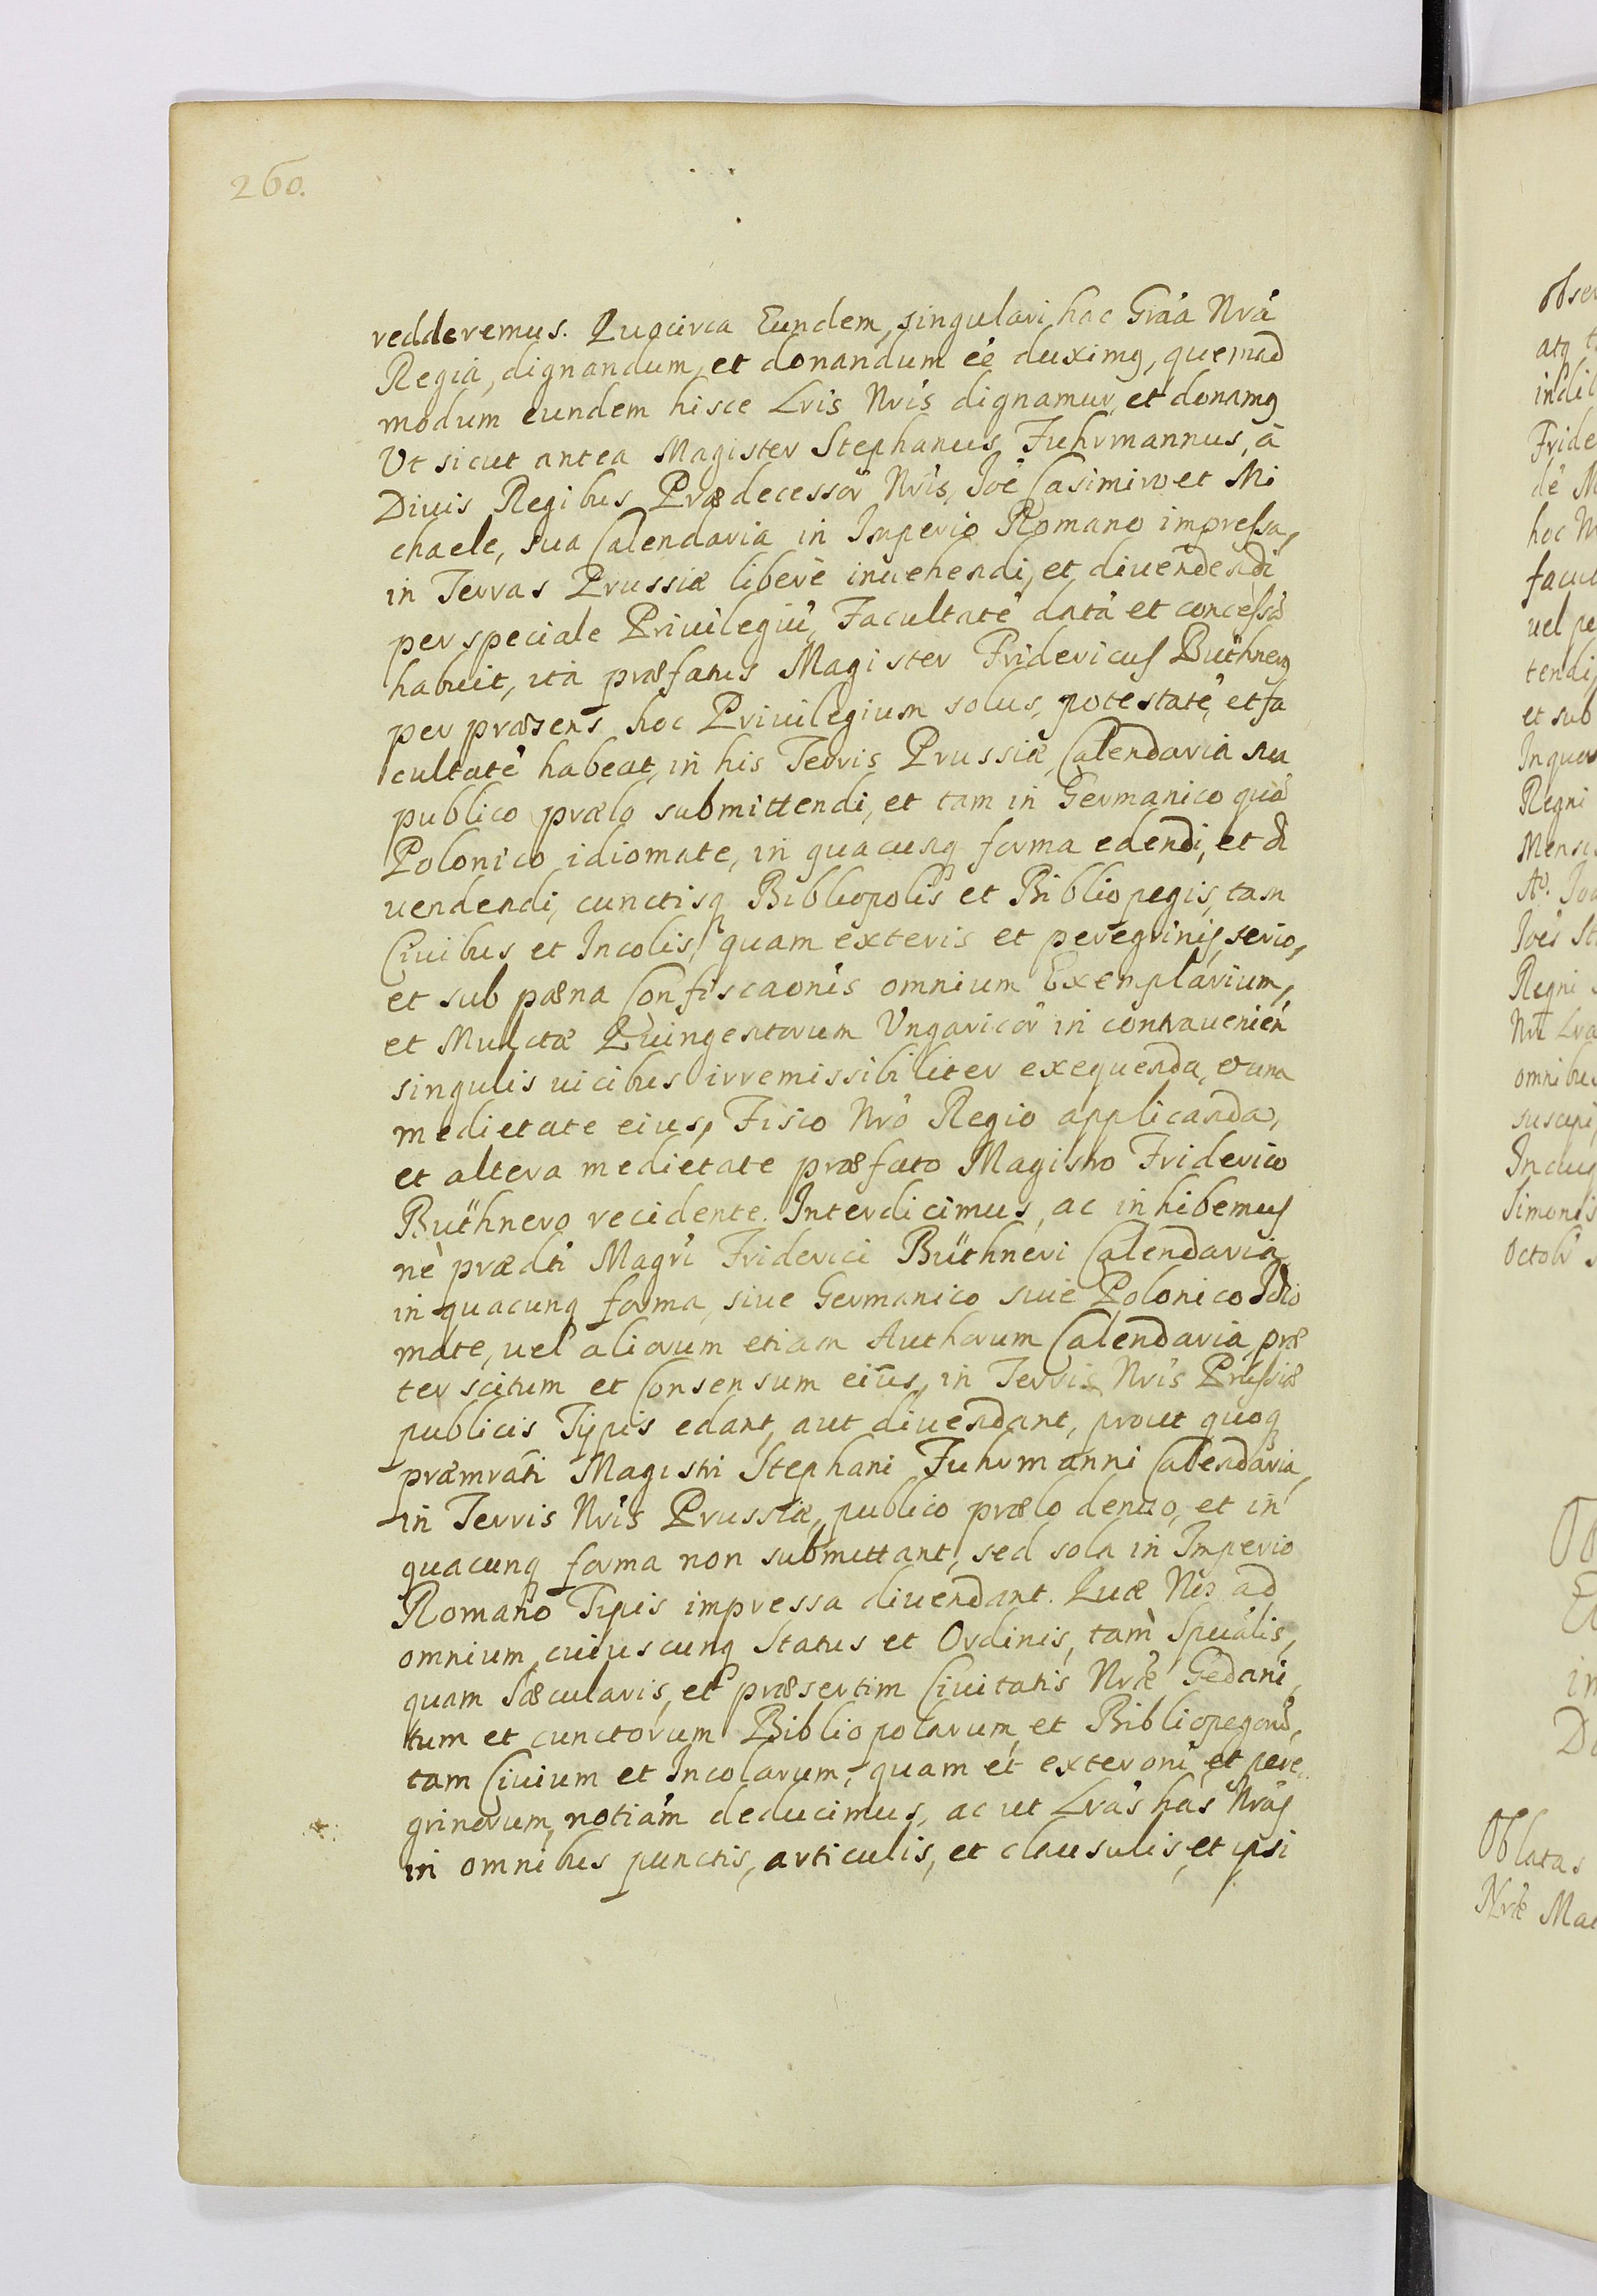 260.
redderemus. Quocirca Eundem, singulari hac Grãa Nrã
Regia, dignandum, et donandum eẽ duximꝰ, quemad
modum eundem hisce Lris Nris dignamur, et donamꝰ
Vt sicut antea Magister Stephanus Fuhrmannus, à
Diuis Regibus Prædecessor̃ Nris, Joẽ Casimiro et Mi
chaele, sua Calendaria in Imperio Romano impressa,
in Terras Prussiæ liberè inuehendi, et diuendendi
per speciale Priuilegiũ, Facultatẽ datã et concessã
habuit, ita præfatus Magister Fridericus Büthnerꝰ
per præsens hoc Priuilegium solus, potestatẽ, et fa
cultatẽ habeat, in his Terris Prussiæ, Calendaria sua
publico prælo submittendi, et tam in Germanico quã
Polonico idiomate, in quacunq forma edendi, et di
uendendi, cunctisq Bibliopolis et Bibliopegis, tam
Ciuibus et Incolis, quam exteris et peregrinis, serio,
et sub pæna Confiscaonis omnium Exemplarium,
et Mulctæ Quingentorum Vngaricor̃ in contrauenien
singulis uicibus irremissibiliter exequenda, et una
medietate eius, Fisco Nrõ Regio applicanda,
et altera medietate præfato Magistro Friderico
Büthnero recidente. Interdicimus, ac inhibemus
nè prædti Magri Friderici Büthneri Calendaria
in quacunq forma, siue Germanico siue Polonico Idio
mate, uel aliorum etiam Authorum Calendaria, præ
ter scitum et Consensum eius, in Terris Nris Prussiæ
publicis Typis edant, aut diuendant, prout quoq
præmrãti Magistri Stephani Fuhrmanni Calendaria,
in Terris Nris Prussiæ, publico prælo denuo, et in
quacunq forma non submittant, sed sola in Imperio
Romano Typis impressa diuendant. Quæ ad
omnium, cuiuscunq Status et Ordinis, tam Spũalis,
quam Sæcularis, et præsertim Ciuitatis Nræ Gedani,
tum et cunctorum Bibliopolarum, et Bibliopegorũ,
tam Ciuium et Incolarum, quam et exterorũ et pere
grinorum, notiam deducimus, ac ut Lrãs has Nrãs
in omnibus punctis, articulis, et clausulis, et ipsi